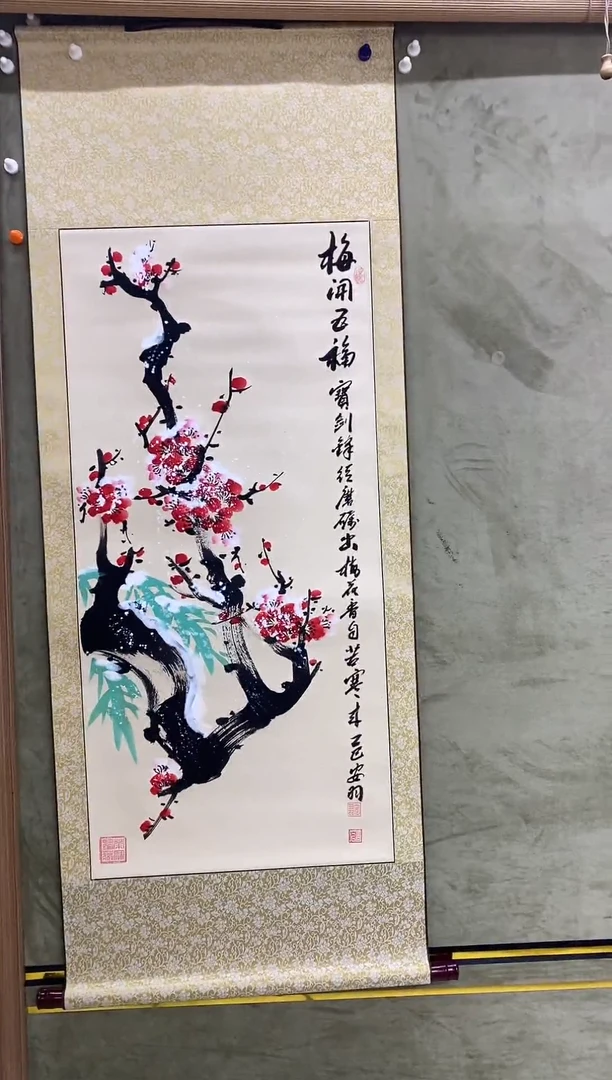 梅開五福
寶劍鋒從磨礪出梅花香自苦寒來